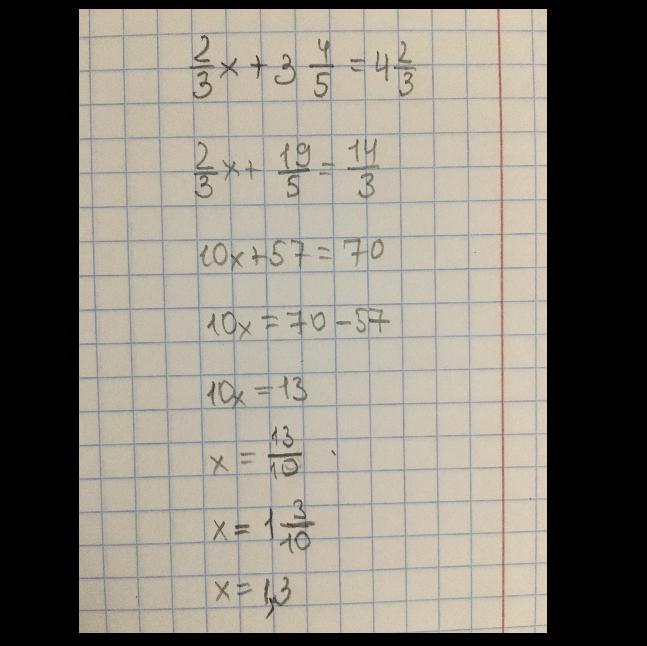 2/3x + 3 4/5 = 4 2/3
2/3x + 19/5 = 14/3
10x + 57 = 70
10x = 70 - 57
10x = 13
x = 13/10
x = 1 3/10
x = 1,3